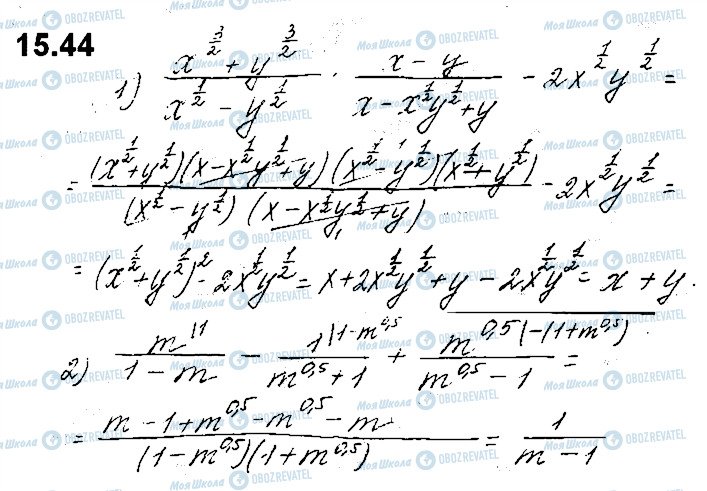 15.44
1) (x^(3/2) + y^(3/2))/(x^(1/2) − y^(1/2)) · (x − y)/(x − x^(1/2)y^(1/2) + y) − 2x^(1/2)y^(1/2) =
= ((x^(1/2) + y^(1/2))(x − x^(1/2)y^(1/2) + y)(x^(1/2) − y^(1/2))(x^(1/2) + y^(1/2)))/((x^(1/2) − y^(1/2))(x − x^(1/2)y^(1/2) + y)) − 2x^(1/2)y^(1/2) =
= (x^(1/2) + y^(1/2))^2 − 2x^(1/2)y^(1/2) = x + 2x^(1/2)y^(1/2) + y − 2x^(1/2)y^(1/2) = x + y.
2) m^(\1)/(1 − m) − 1^(\1−m^0,5)/(m^0,5 + 1) + m^0,5 (−(1+m^0,5)/(m^0,5 − 1) =
= (m − 1 + m^0,5 − m^0,5 − m)/((1 − m^0,5)(1 + m^0,5)) = 1/(m − 1)
Моя Школа OBOZREVATEL